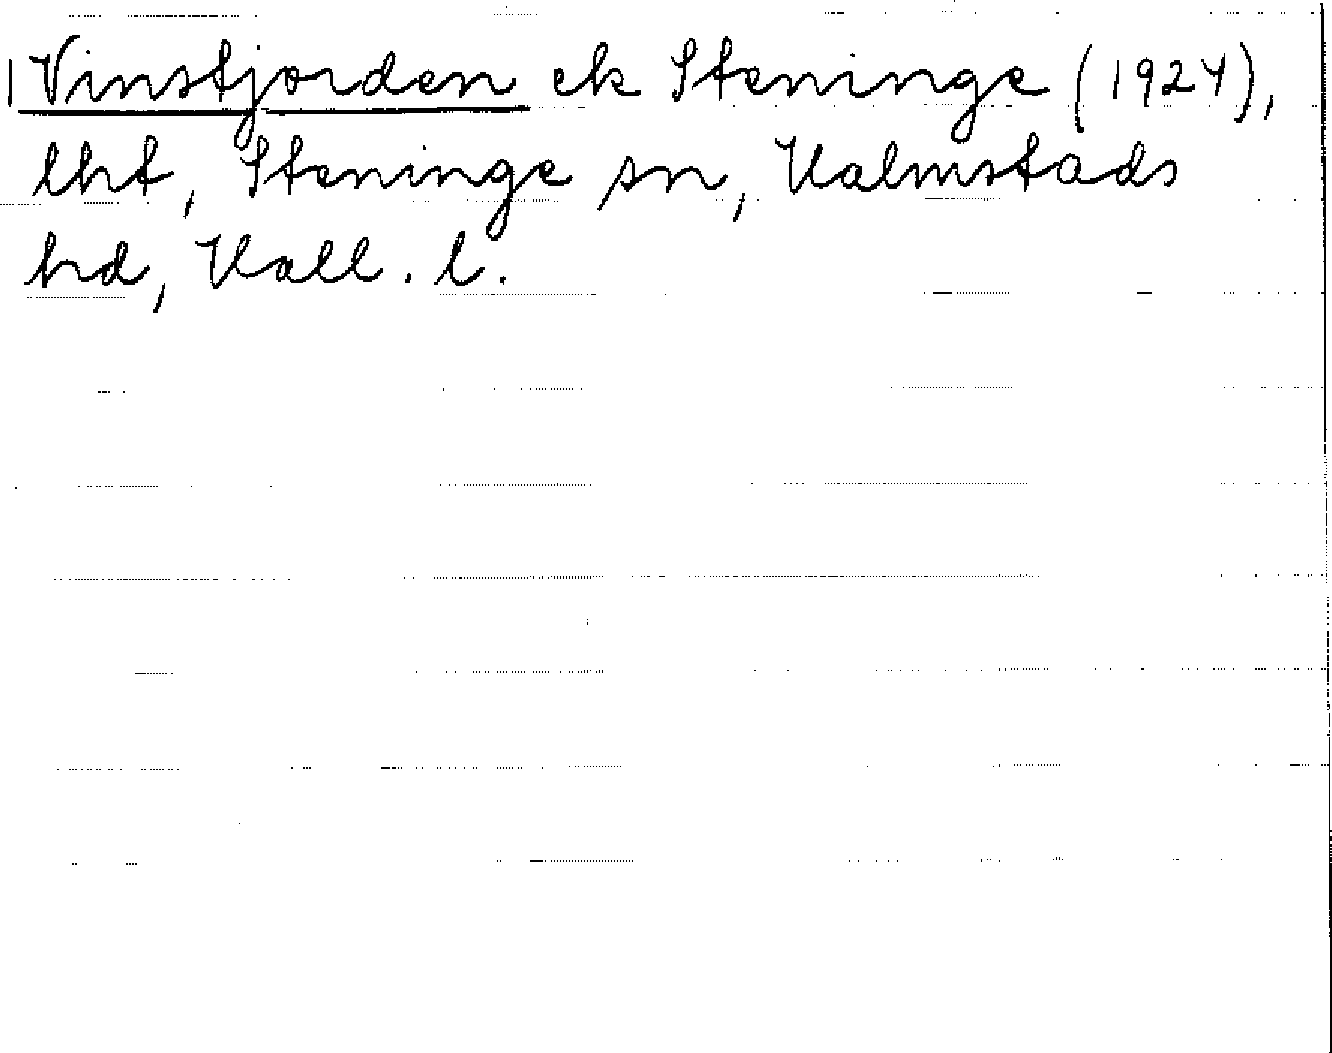 Vinstjorden ek Steninge (1924),
lht, Steninge sn, Halmstads
hd, Hall. l.